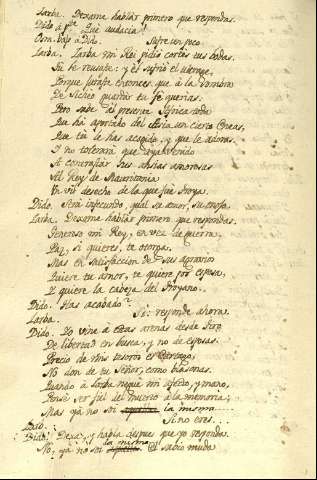 Larba. Dexame hablàr primero que respondas.
Dido à pte. Què audacia!
Osm. bajo à Dido. Sufre un poco.
Larba. Larba mi Rei pidiò cortès tus bodas.
Tu le reusaste: y èl sufriò el ultrage,
Porque juraste entonces, que à la sombra
De Sichèo guardar tu fè querias.
Pero sabe al presente Africa toda
Que hà aportado del Asia un cierto Eneas,
Que tù le has acogido, y que le adoras.
Y no tolerarà que haya venido
A contrastàr sus ansias amorosas
Al Rey de Mauritania
Un vil desecho de la que fue Troya.
Dido. Serà infecundo, qual su amor, su enojo.
Larba. Dexame hablàr primero que respondas.
Generoso mi Rey, en vez de guerra,
Paz, si quieres, te otorga.
Mas en satisfaccion de sus agravios
Quiere tu amor, te quiere por esposa,
Y quiere la cabeza del Troyano.
Dido. Has acabado?
Larba. Sì: responde ahora.
Dido. Yo vine à estas arenas desde Tiro
De libertad en busca, y no de esposas.
Precio de mis tesoros es Cartago,
No don de tu Señor, como blasonas.
Quando à Larba neguè mi afecto, y mano,
Pensè ser fiel del muerto à la memoria;
Mas yà no soi aquella la misma
Larb. Si no eres...
Dido. Dexa, y habla despues que yo responda.
la misma
No, yà no soi aquella: el sabio muda